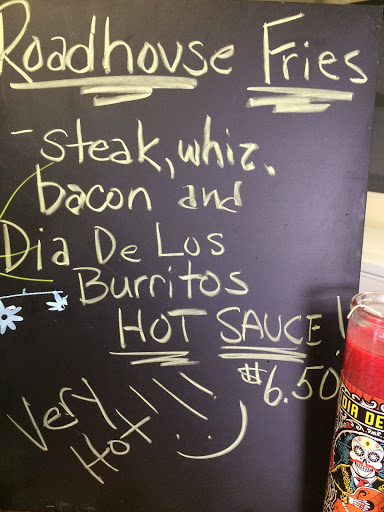 Roadhouse Fries
- steak, whiz,
bacon and
Dia De Los
Burritos
HOT SAUCE!
$6.50
Very
Hot!!!! :)
DIA DE